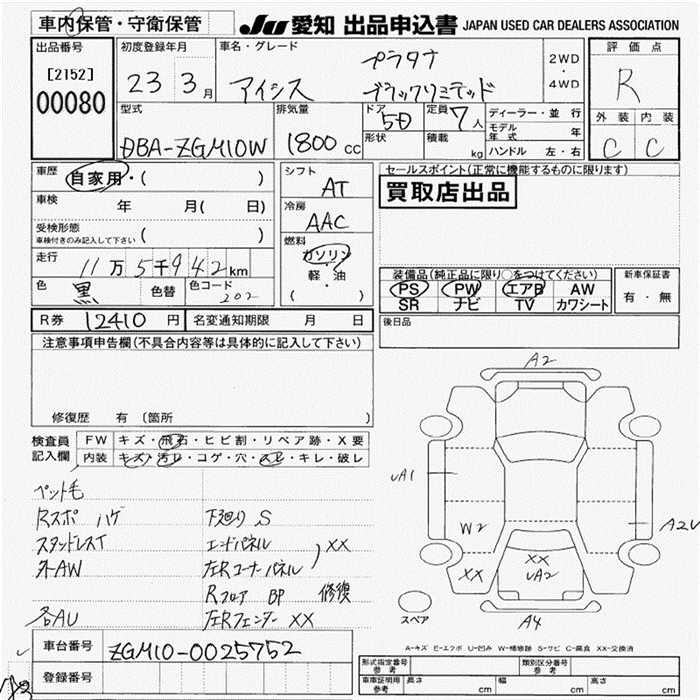 車内保管・守衛保管
JU 愛知 出品申込書 JAPAN USED CAR DEALERS ASSOCIATION
出品番号
[2152]
00080
初度登録年月
23 3月
車名・グレード
アイシス
プラタナ
ブラックリミテッド
2WD
・
4WD
評価点
R
型式
DBA-ZGM10W
排気量
1800 cc
ドア
5D
形状
定員
7人
積載
kg
ディーラー・並行
モデル年式 年
ハンドル 左・右
外装
C
内装
C
車歴
自家用・( )
車検
年 月( 日)
受検形態
車検付きのみ記入して下さい ( )
走行
11万5千942km
色
黒
色替
色コード
202
シフト
AT
冷房
AAC
燃料
ガソリン
・
軽・油
( )
セールスポイント(正常に機能するものに限ります)
買取店出品
装備品(純正品に限り○をつけてください)
PS PW エアB AW
SR ナビ TV カワシート
新車保証書
有・無
後日品
R券 12410 円
名変通知期限 月 日
注意事項申告欄(不具合内容等は具体的に記入して下さい)
修復歴 有 〔箇所 〕
検査員
記入欄
FW キズ・飛石・ヒビ割・リペア跡・X要
内装 キズ・汚レ・コゲ・穴・スレ・キレ・破レ
ペット毛
Rスポ ハゲ
スタッドレスT
外AW
各AU
下廻り S
エンドパネル
左Rコーナーパネル
XX
Rフロア BP 修復
左Rフェンダー XX
A2
UA1
W2
XX
XX
UA2
A2U
A4
スペア
A-キズ E-エクボ U-凹み W-補修跡 S-サビ C-腐食 XX-交換済
車台番号
ZGM10-0025752
登録番号
形式指定番号
参考
類別区分番号
参考
車庫証明用
参考
長さ cm
幅 cm
高さ cm